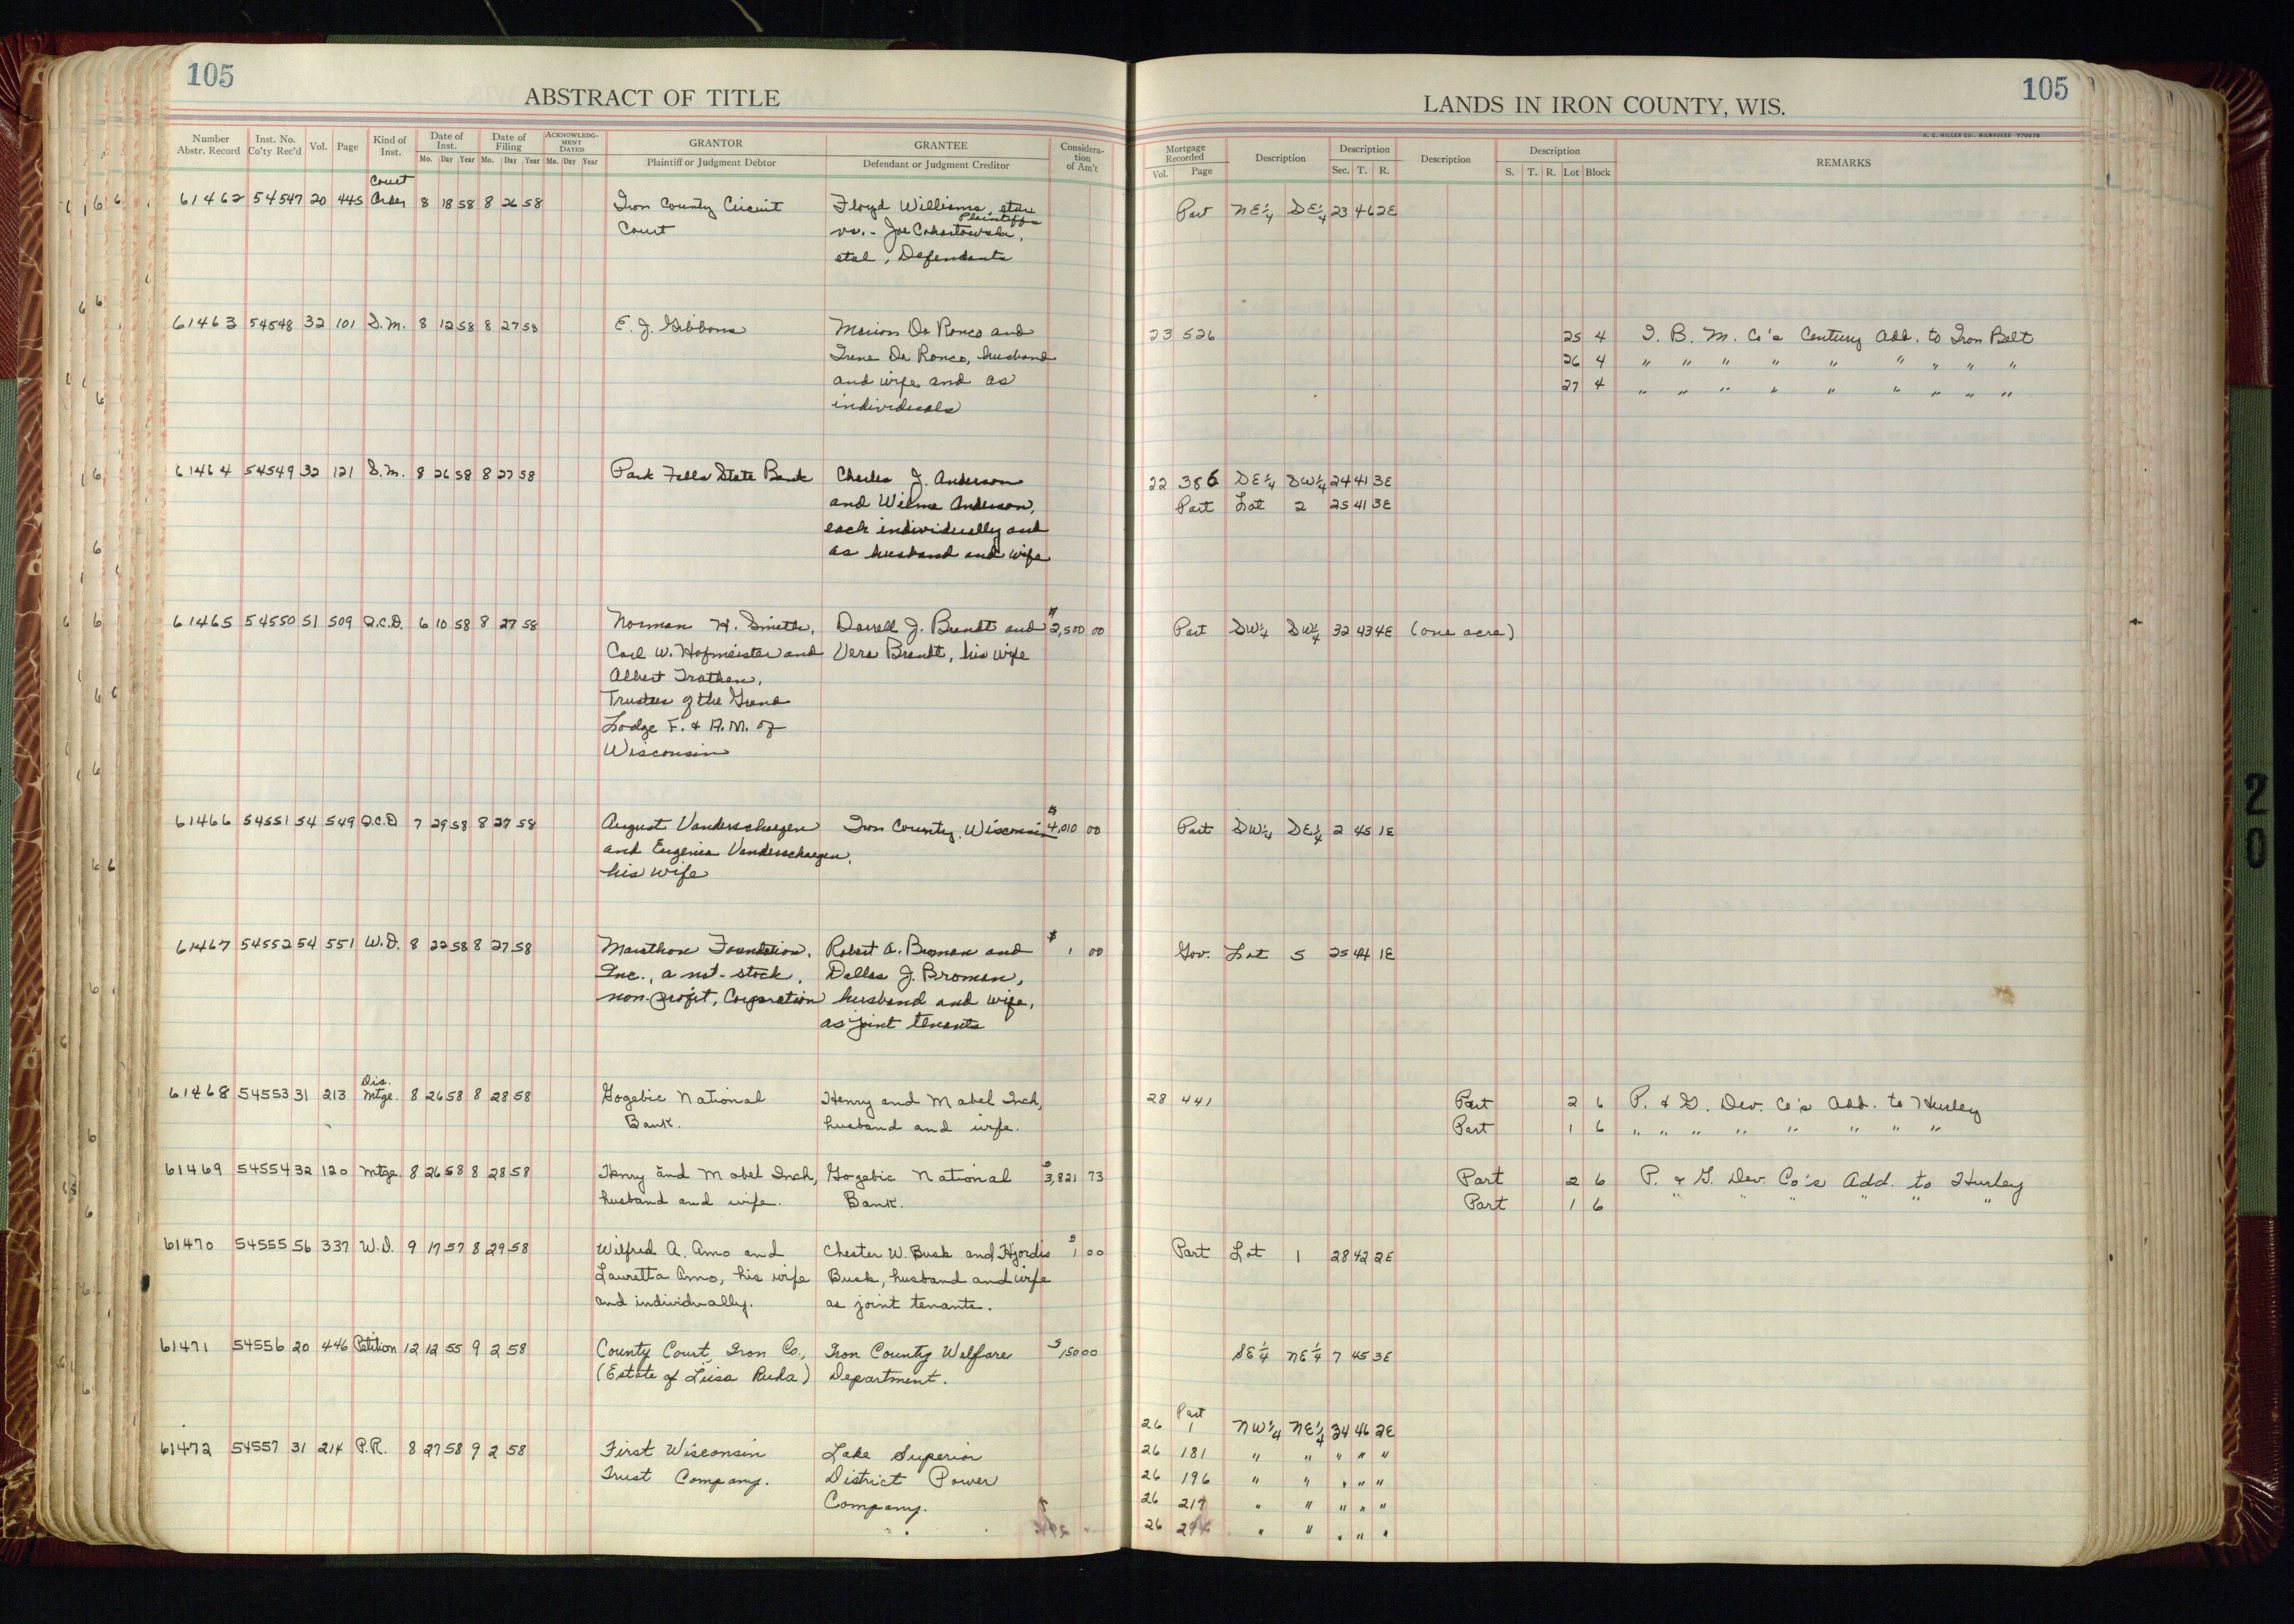 105
ABSTRACT OF TITLE
Number Abstr. Record Inst. No. Co'ty Rec'd Vol. Page Kind of Inst. Date of Inst. Date of Filing ACKNOWLEDGMENT DATED GRANTOR GRANTEE Consideration of Am't
Mo. Day Year Mo. Day Year Mo. Day Year Plaintiff or Judgment Debtor Defendant or Judgment Creditor
61462 54547 20 445 Court Order 8 18 58 8 26 58 Iron County Circuit Floyd Williams, etux
Court Plaintiffs vs. - Joe
etal, Defendants
61463 54548 32 101 S.M. 8 12 58 8 27 58 E. J. Gibbons Marion Da Ronco and
Irene Da Ronco, husband
and wife and as
individuals
61464 54549 32 121 S.M. 8 26 58 8 27 58 Park Falls State Bank Charles J. Anderson
and Wilma Anderson,
each individually and
as husband and wife
61465 54550 51 509 Q.C.D. 6 10 58 8 27 58 Norman H. Smith, Darrell J. Brandt and $2,500 00
Carl W. Hofmeister and Vera Brandt, his wife
Albert Trathen,
Trustees of the Grand
Lodge F. & A.M. of
Wisconsin
61466 54551 54 549 Q.C.D 7 29 58 8 27 58 August Vanderschaegen Iron County, Wisconsin $4,010 00
and Eugenia Vanderschaegen,
his wife
61467 54552 54 551 W.D. 8 22 58 8 27 58 Marathon Foundation, Robert A. Broman and $1 00
Inc., a not-stock, Dallas J. Broman,
non-profit, Corporation husband and wife,
as joint tenants
61468 54553 31 213 Dis. Mtge. 8 26 58 8 28 58 Gogebic National Henry and Mabel Inch,
Bank. husband and wife.
61469 54554 32 120 Mtge. 8 26 58 8 28 58 Henry and Mabel Inch, Gogebic National $3,821 73
husband and wife. Bank.
61470 54555 56 337 W.D. 9 17 57 8 29 58 Wilfred A. Amo and Chester W. Busk and Hjordis $1 00
Lauretta Amo, his wife Busk, husband and wife
and individually. as joint tenants.
61471 54556 20 446 Petition 12 12 55 9 2 58 County Court, Iron Co., Iron County Welfare $150 00
(Estate of Liisa Ruha) Department.
61472 54557 31 214 P.R. 8 27 58 9 2 58 First Wisconsin Lake Superior
Trust Company. District Power
Company.
105
LANDS IN IRON COUNTY, WIS.
H. C. MILLER CO., MILWAUKEE
Mortgage Recorded Description Description Description Description REMARKS
Vol. Page Sec. T. R. S. T. R. Lot Block
Part NE¼ SE¼ 23 46 2E
23 526 25 4 I. B. M. Co's Century Add. to Iron Belt
26 4 " " " " " " " " "
27 4 " " " " " " " " "
22 386 SE¼ SW¼ 24 41 3E
Part Lot 2 25 41 3E
Part SW¼ SW¼ 32 43 4E (one acre)
Part SW¼ SE¼ 2 45 1E
Gov. Lot 5 25 44 1E
28 441 Part 2 6 P. & G. Dev. Co's Add. to Hurley
Part 1 6 " " " " " " " "
Part 2 6 P. & G. Dev. Co's Add. to Hurley
Part 1 6 " " " " " "
Part Lot 1 28 42 2E
SE¼ NE¼ 7 45 3E
Part
26 1 NW¼ NE¼ 34 46 2E
26 181 " " " " "
26 196 " " " " "
26 217 " " " " "
26 294 " " " " "
20